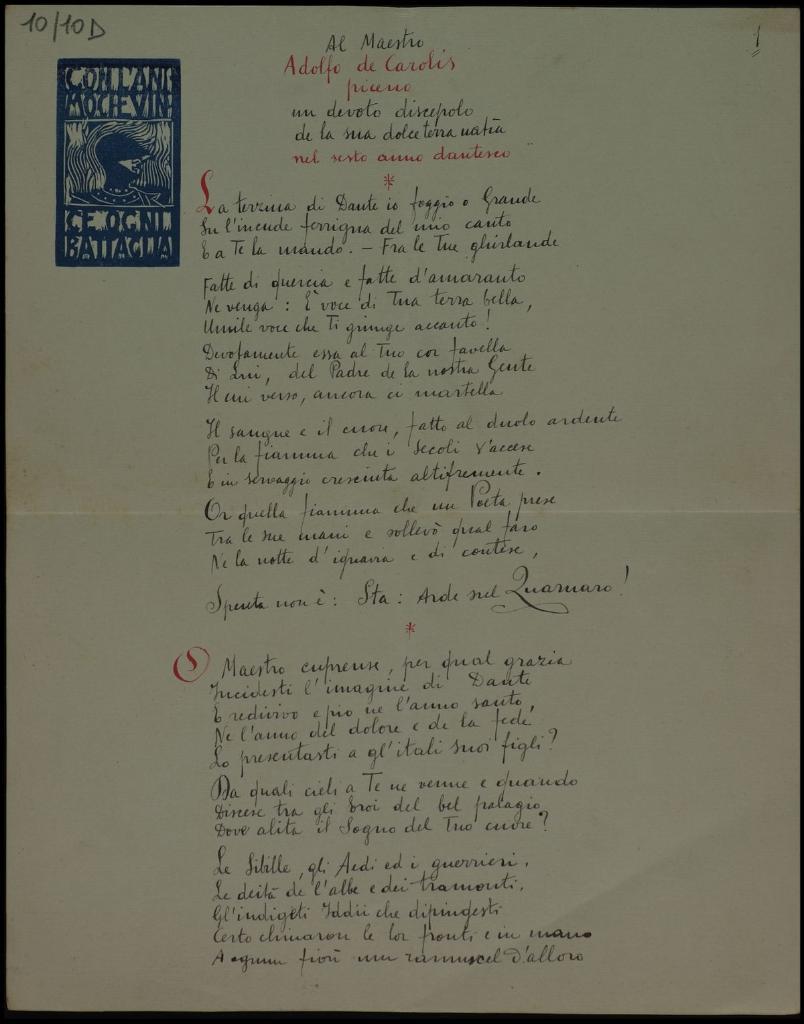 10/10D
1
CON L'ANI
MO CHE VIN
CE OGNI
BATTAGLIA
Al Maestro
Adolfo de Carolis
piceno
un devoto discepolo
de la sua dolce terra natìa
nel sesto anno dantesco
*
La terzina di Dante io foggio o Grande
Su l'incude ferrigna del mio canto
E a Te la mando. – Fra le Tue ghirlande
Fatte di quercia e fatte d'amaranto
Ne venga: È voce di Tua terra bella,
Umile voce che Ti giunge accanto!
Devotamente essa al Tuo cor favella
Di Lui, del Padre de la nostra Gente
Il cui verso, ancora ci martella
Il sangue e il cuore, fatto al duolo ardente
Per la fiamma che i secoli s'accese
E in servaggio cresciuta altifremente.
Or quella fiamma che un Poeta prese
Tra le sue mani e sollevò qual faro
Ne la notte d'ignavia e di contese,
Spenta non è: Sta: Arde nel Quarnaro!
*
O Maestro cuprense, per qual grazia
Incidesti l'imagine di Dante
E redivivo e pio ne l'anno santo,
Ne l'anno del dolore e de la fede
Lo presentasti a gl'itali suoi figli?
Da quali cieli a Te ne venne e quando
Discese tra gli Eroi del bel palagio
Dove alita il Sogno del Tuo cuore?
Le Sibille, gli Aedi ed i guerrieri,
Le deità de l'albe e dei tramonti,
Gl'indigeti Iddii che dipingesti
Certo chinaron le lor fronti e in mano
A ognun fiorì un ramuscel d'alloro